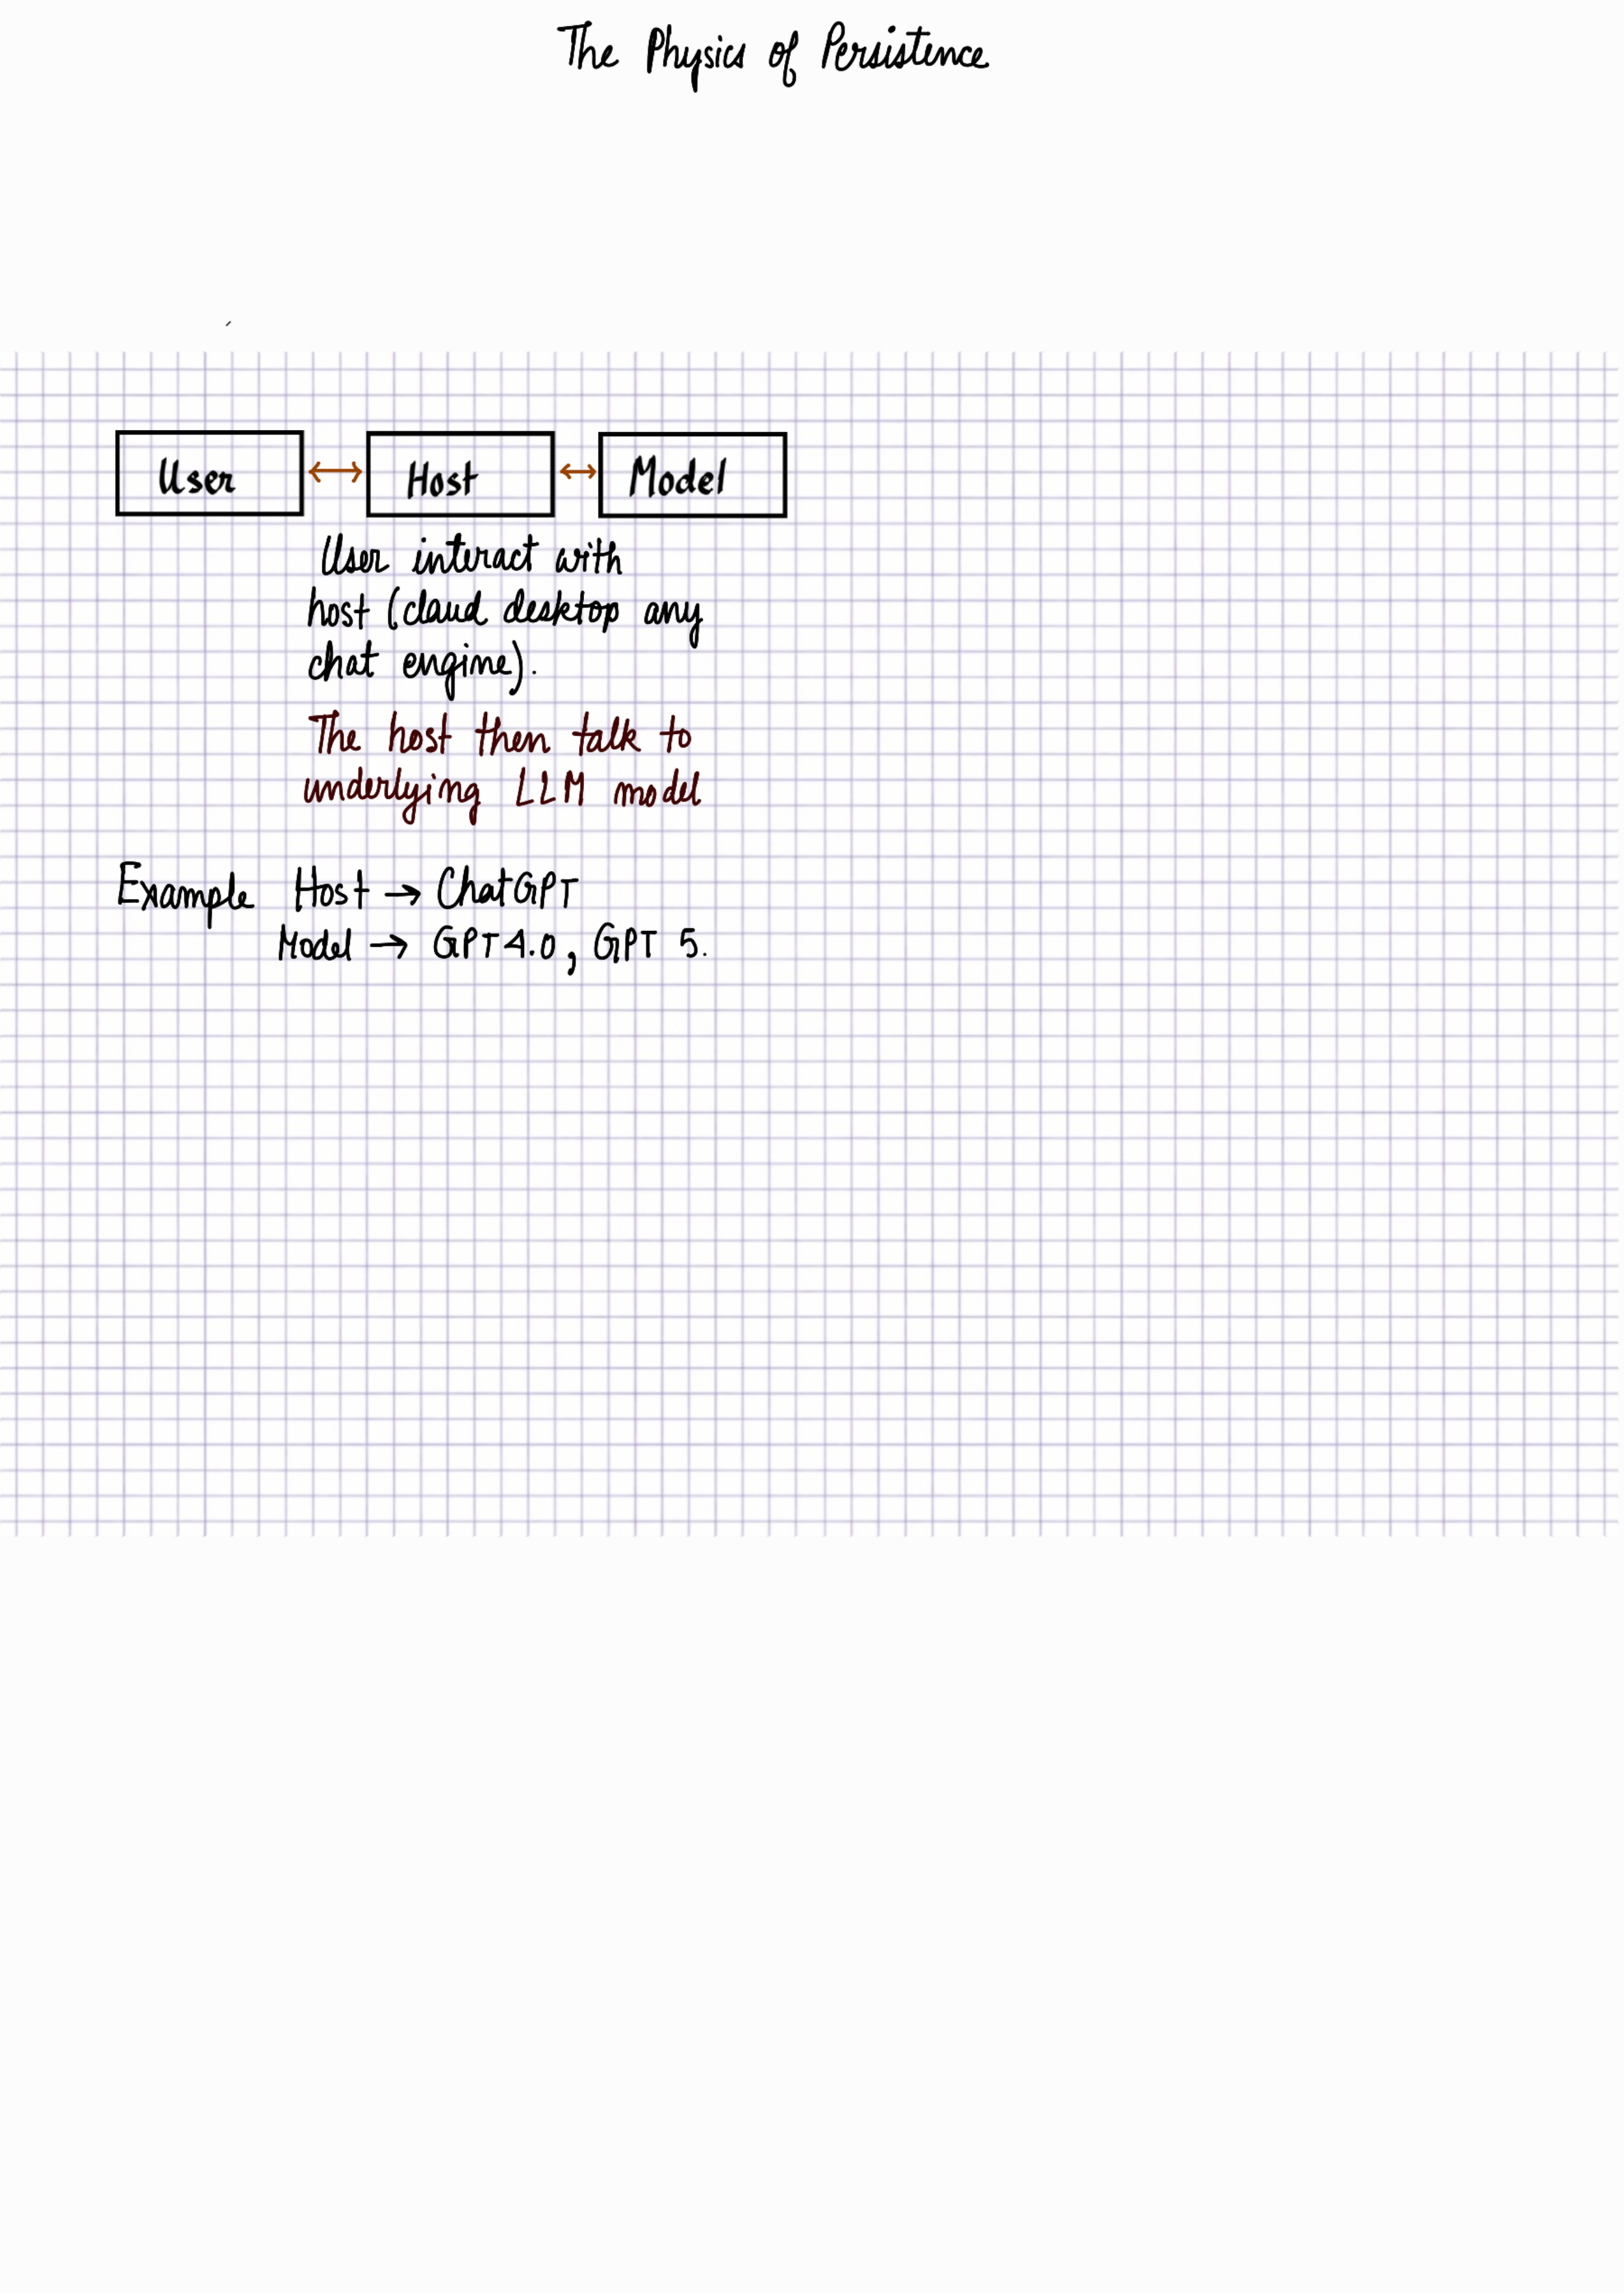 The Physics of Persistence
User Host Model
User interact with
host (claud desktop any
chat engine).
The host then talk to
underlying LLM model
Example Host → ChatGPT
Model → GPT 4.0, GPT 5.